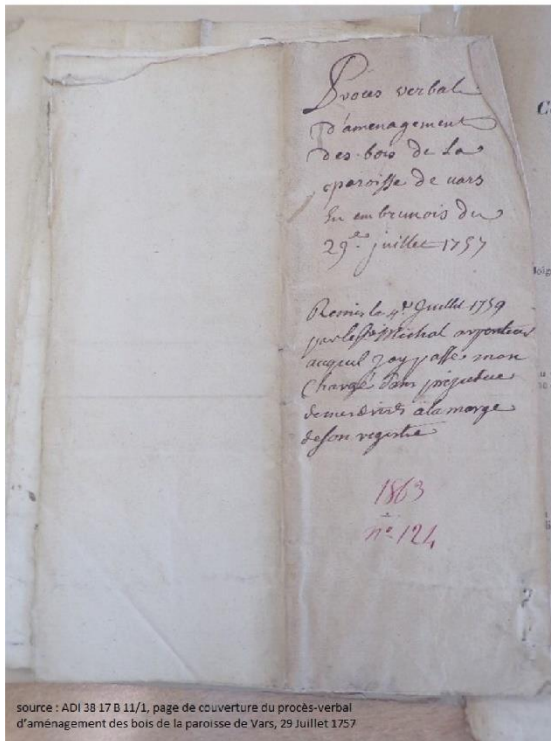 Proces verbal
d'amenagement
des bois de la
paroisse de vars
En embrunois du
29e. juillet 1757
Remis le 4e Juillet 1759
par le Sr Michal arpenteur
auquel j'ay passé mon
Chargé sans prejudice
de mes droits a la marge
de son registre
1863
no 124
source : ADI 38 17 B 11/1, page de couverture du procès-verbal
d'aménagement des bois de la paroisse de Vars, 29 Juillet 1757